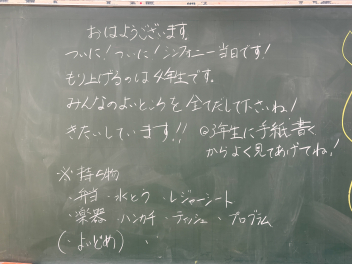 おはようございます。
ついに!ついに!シンフォニー当日です!
もり上げるのは4年生です。
みんなのよいところを全てだして下さいね!
きたいしています!! @3年生に手紙書く
からよく見てあげてね!
※持ち物
・弁当・水とう・レジャーシート
・楽器・ハンカチ・ティッシュ・プログラム
(・よいどめ) ・